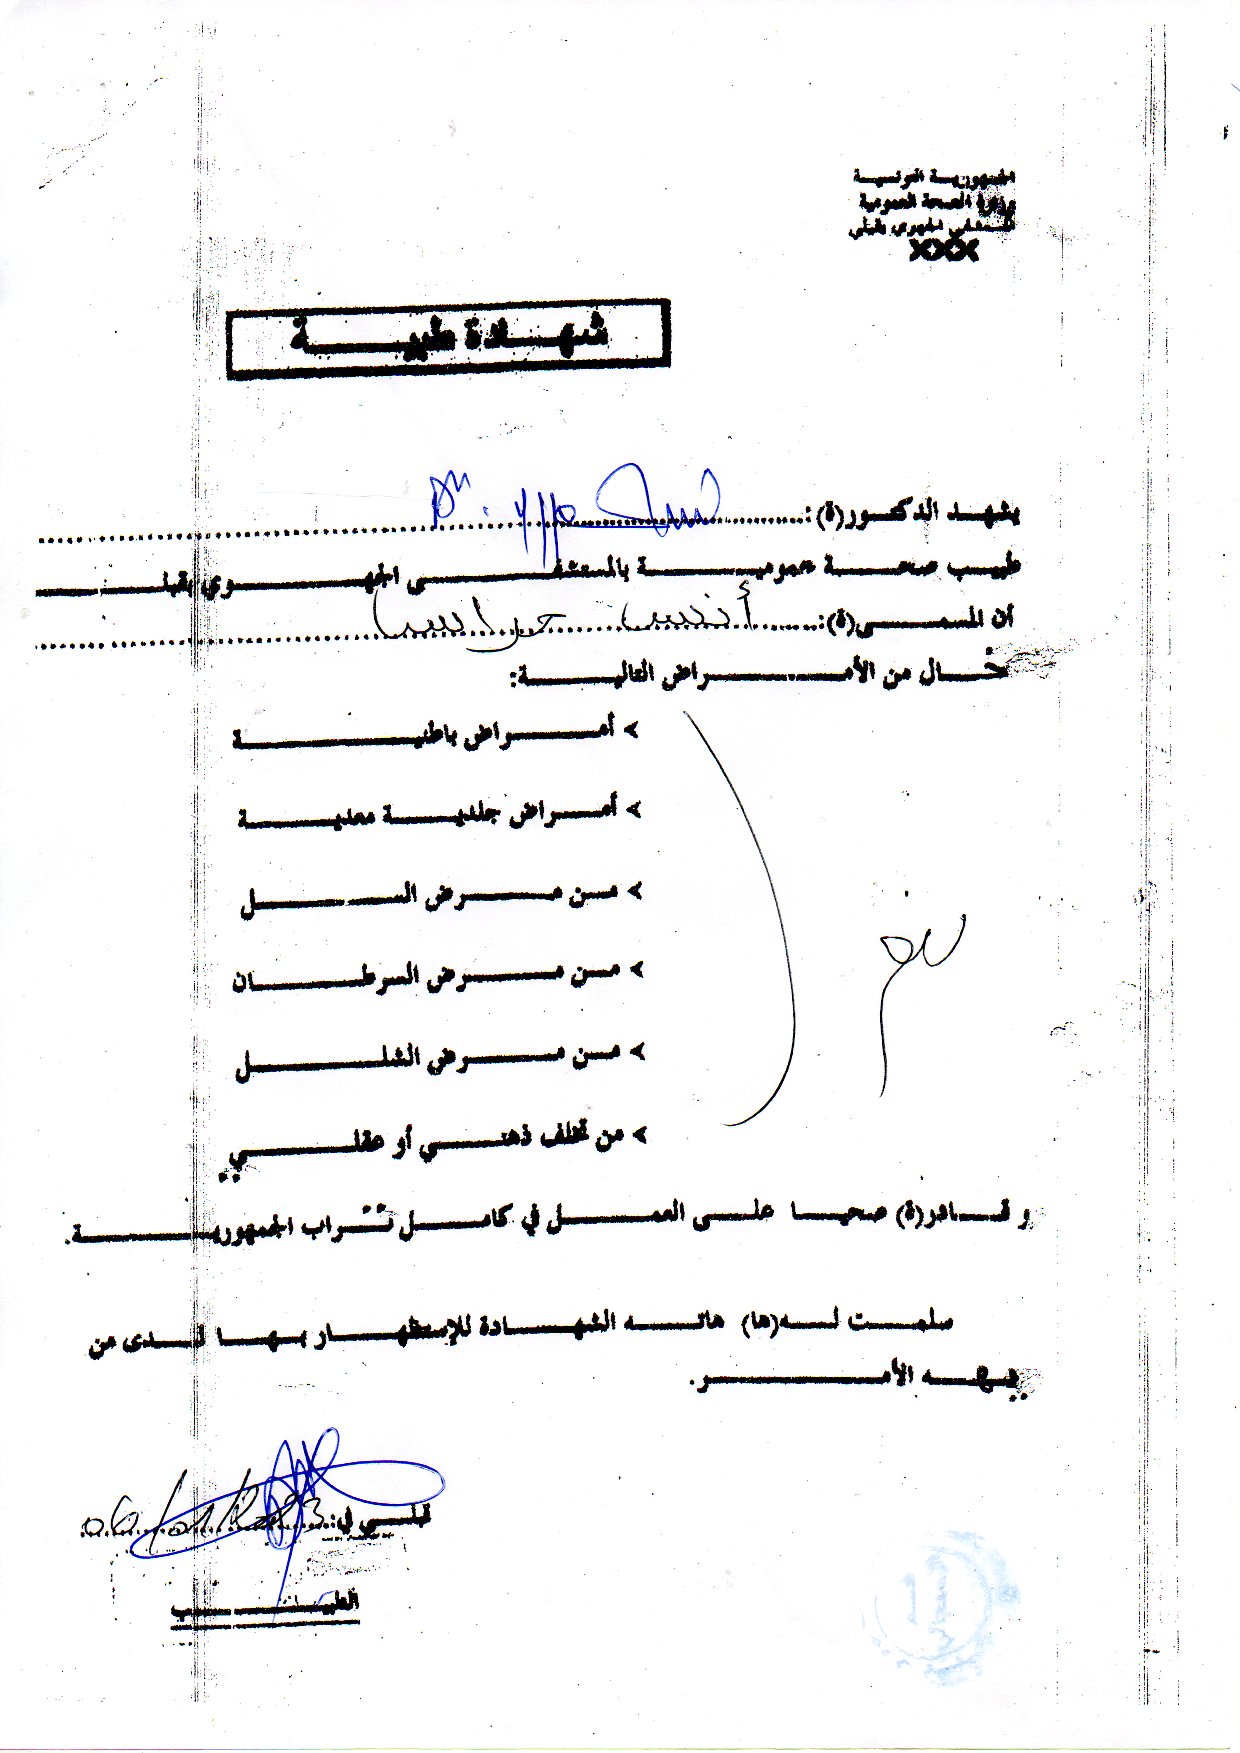 الجمهورية التونسية
وزارة الصحة العمومية
المستشفى الجهوي بقبلي
XXX
شهادة طبية
يشهد الدكتور(ة):
طبيب صحة عمومية بالمستشفى الجهوي بقبلي
أن المسمى(ة): أنس
خال من الأمراض التالية:
أمراض باطنية
أمراض جلدية معدية
من مرض السل
من مرض السرطان
من مرض الشلل
من تخلف ذهني أو عقلي
نعم
و قادر(ة) صحيا على العمل في كامل تراب الجمهورية.
سلمت له(ها) هاته الشهادة للإستظهار بها لدى من
يهمه الأمر.
قبلي في:
الطبيب